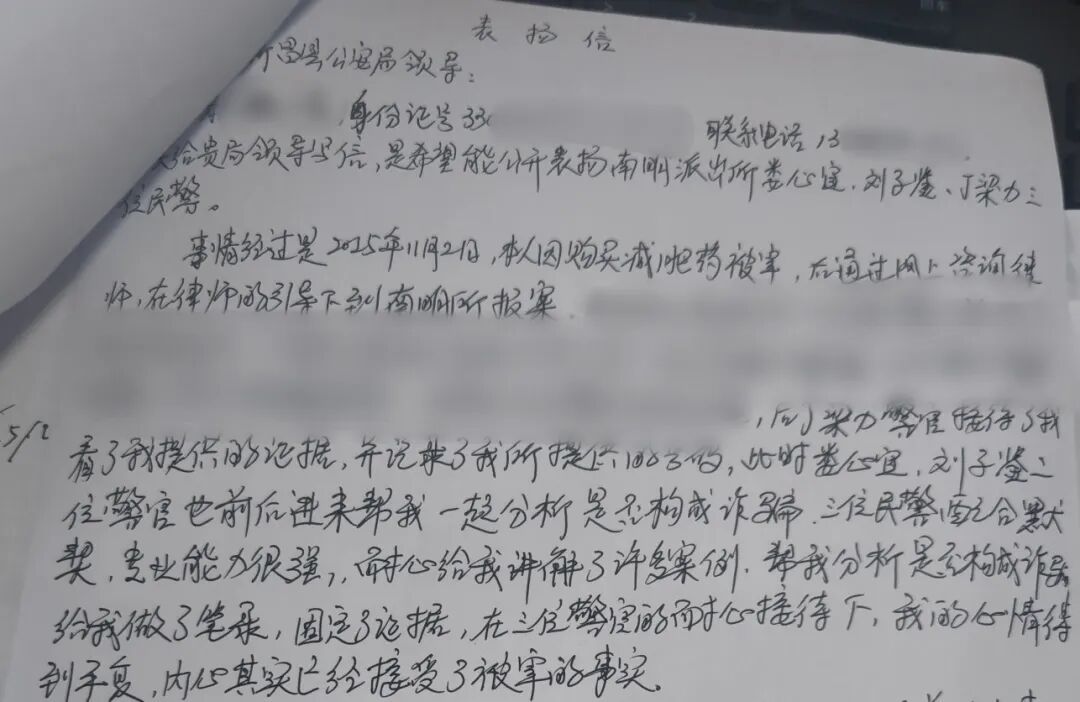 表扬信
新昌县公安局领导:
身份证号330 联系电话,13
给贵局领导写信,是希望能公开表扬南明派出所娄心宜、刘子鉴、丁梁力三
位民警。
事情经过是2025年11月21日,本人因购买减肥药被害,后通过网上咨询律
师,在律师的引导下到南明所报案.
,后丁梁力警官接待了我
看了我提供的证据,并记录了我所提供的号码,此时娄心宜,刘子鉴二
位警官也前后进来帮我一起分析是否构成诈骗.三位民警配合默
契,专业能力很强,耐心给我讲解了许多案例.帮我分析是否构成诈骗
给我做了笔录,固定了证据,在三位警官的耐心接待下,我的心情得
到平复,内心其实已经接受了被害的事实.